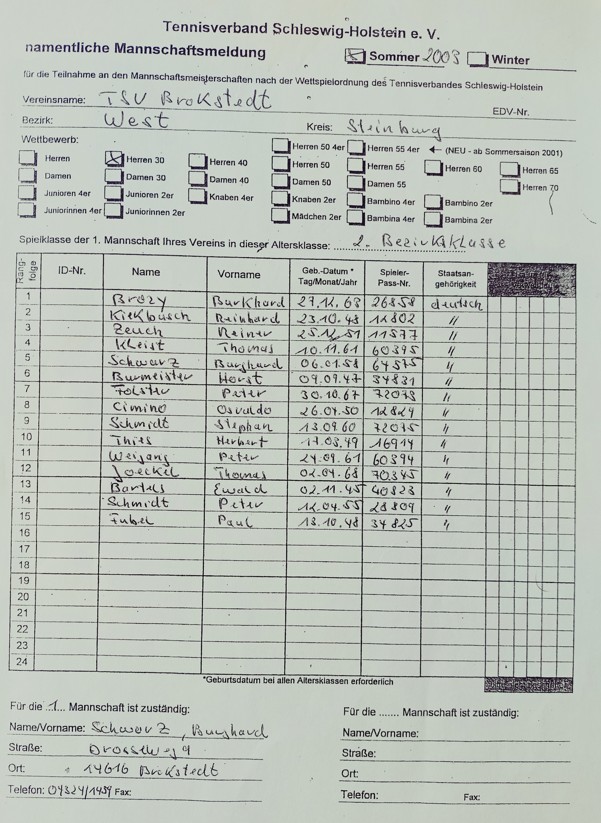 Tennisverband Schleswig-Holstein e. V.
namentliche Mannschaftsmeldung ☒ Sommer 2003 ☐ Winter
für die Teilnahme an den Mannschaftsmeisterschaften nach der Wettspielordnung des Tennisverbandes Schleswig-Holstein
Vereinsname: TSV Brokstedt EDV-Nr.
Bezirk: West Kreis: Steinburg
Wettbewerb: ☐ Herren 50 4er ☐ Herren 55 4er ← (NEU - ab Sommersaison 2001)
☐ Herren ☒ Herren 30 ☐ Herren 40 ☐ Herren 50 ☐ Herren 55 ☐ Herren 60 ☐ Herren 65
☐ Damen ☐ Damen 30 ☐ Damen 40 ☐ Damen 50 ☐ Damen 55 ☐ Herren 70
☐ Junioren 4er ☐ Junioren 2er ☐ Knaben 4er ☐ Knaben 2er ☐ Bambino 4er ☐ Bambino 2er
☐ Juniorinnen 4er ☐ Juniorinnen 2er ☐ Mädchen 2er ☐ Bambina 4er ☐ Bambina 2er
Spielklasse der 1. Mannschaft Ihres Vereins in dieser Altersklasse: 2. Bezirksklasse
Rang-folge ID-Nr. Name Vorname Geb.-Datum * Tag/Monat/Jahr Spieler-Pass-Nr. Staatsan-gehörigkeit
1 Brozy Burkhard 27.12.63 26858 deutsch
2 Kiekbusch Reinhard 23.10.43 12802 "
3 Zeuch Reiner 25.12.51 11577 "
4 Kleist Thomas 10.11.61 60395 "
5 Schwarz Burghard 06.01.58 64575 "
6 Burmeister Horst 09.09.47 34831 "
7 Folster Peter 30.10.67 72073 "
8 Cimino Osvaldo 26.04.50 12824 "
9 Schmidt Stephan 13.09.60 72075 "
10 Thies Herbert 17.03.49 16914 "
11 Weigang Peter 24.09.61 60394 "
12 Joeckel Thomas 02.04.68 70345 "
13 Bartels Ewald 02.11.45 40823 "
14 Schmidt Peter 12.04.55 28809 "
15 Fubel Paul 13.10.48 34825 "
16
17
18
19
20
21
22
23
24
*Geburtsdatum bei allen Altersklassen erforderlich
Für die .1... Mannschaft ist zuständig: Für die ....... Mannschaft ist zuständig:
Name/Vorname: Schwarz, Burghard Name/Vorname:
Straße: Drosselweg 9 Straße:
Ort: 14616 Brokstedt Ort:
Telefon: 04324/1459 Fax: Telefon: Fax: